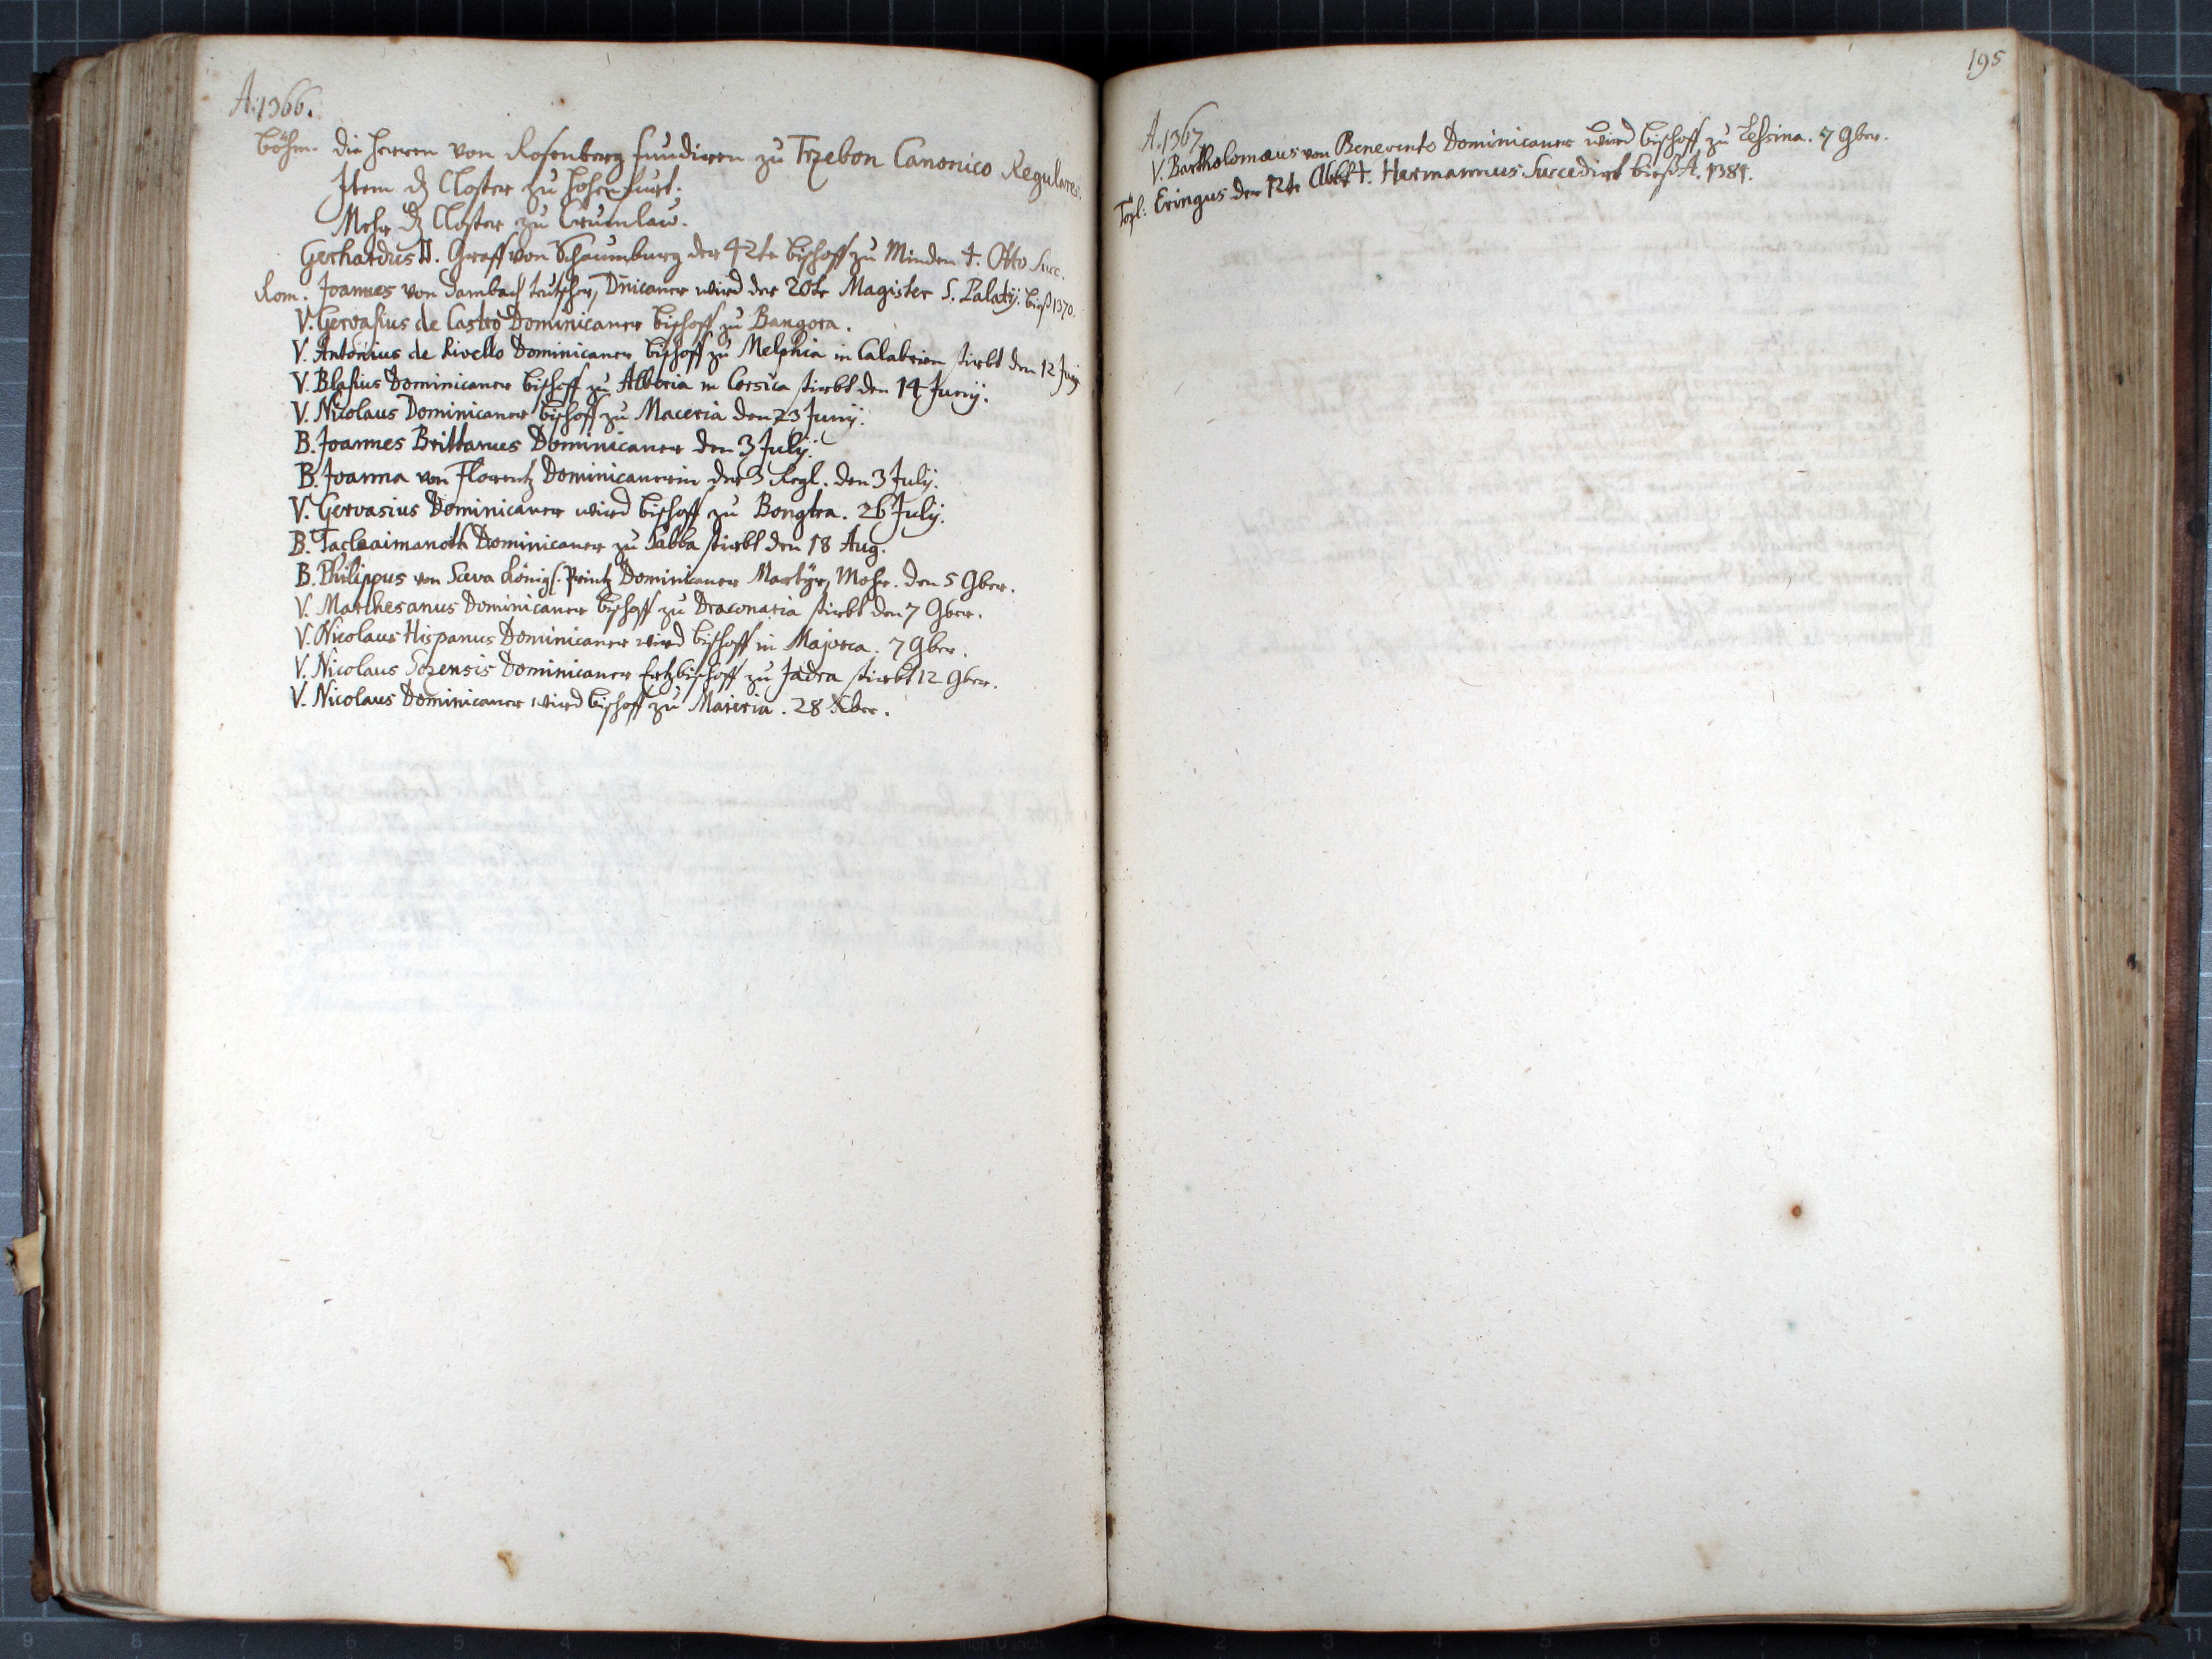 A. 1366.
Böhm. die Herren von Rosenberg fundiren zu Trzebon Canonico Regulares.
Item dz Closter zu Hohenfurt.
Mehr dz Closter zu Crumlau.
Gerhardus II. Graff von Schaumburg der 42te Bischoff zu Minden †. Otto Succ.
Rom. Joannes von Dambach teutscher, Dnicaner wird der 20te Magister S. Palatij. bieß 1370.
V. Gervasius de Castro Dominicaner Bischoff zu Bangora.
V. Antonius de Rivello Dominicaner Bischoff zu Melphia in Calabrien stirbt den 12 Junij
V. Blasius Dominicaner Bischoff zu Alberia in Corsica stirbt den 14 Junij.
V. Nicolaus Dominicaner Bischoff zu Maceria den 23 Junij.
B. Joannes Brittanus Dominicaner den 3 Julij.
B. Joanna von Florentz Dominicanerin der 3 Regl. den 3 Julij.
V. Gervasius Dominicaner wird Bischoff zu Bongtra. 26 Julij.
B. Taclaaimanoth Dominicaner zu Sabba stirbt den 18 Aug.
B. Philippus von Sava Königs. Printz Dominicaner Martyr, Mohr. den 5 9ber.
V. Marchesanus Dominicaner Bischoff zu Draconaria stirbt den 7 9ber.
V. Nicolaus Hispanus Dominicaner wird Bischoff in Majorca. 7 9ber.
V. Nicolaus Sozensis Dominicaner Ertzbischoff zu Jadra stirbt 12 9ber.
V. Nicolaus Dominicaner wird Bischoff zu Maieria. 28 Xber.
195
A. 1367.
V. Bartholomæus von Benevento Dominicaner wird Bischoff zu Lesina. 7 9ber.
Töpl: Eringus der 12te Abbt †. Hermannus Succedirt bieß A. 1381.